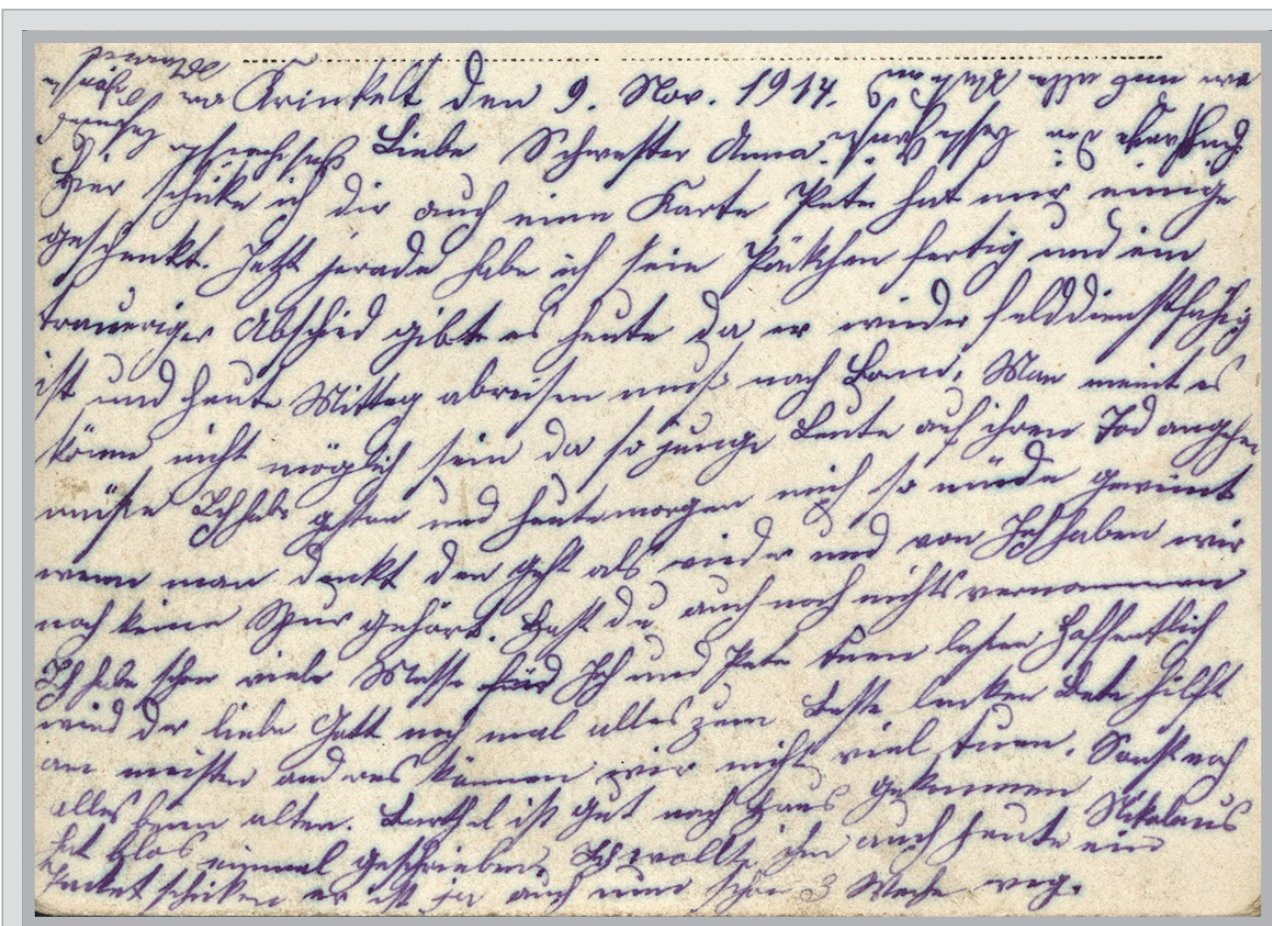 Krinkelt den 9. Nov. 1914.
Liebe Schwester Anna.
Hier schicke ich dir auch eine Karte Peter hat mir einige
geschenkt. Jetzt jerade habe ich sein Päckchen fertig und ein
traueriger Abschied gibt es heute da er wieder felddienstfähig
ist und heute Mittag abreisen muß nach Bonn. Man meint es
könne nicht möglich sein da so junge Leute auf ihren Tod angehen
müße Ich habe gestern und heutemorgen mich so müde geweint
wenn man denkt den geht als wieder und von Joh haben wir
noch keine Spur gehört. Hast du auch noch nichts vernommen
Ich habe schon viele Messe für Joh und Peter tuen lesen hoffentlich
wird der liebe Gott noch mal alles zum beste lenken Bete hilft
am meisten anderes können wir nicht viel tuen. Sonst noch
alles beim alten. Barthel ist gut nach Haus gekommen Nikolaus
hat blos einmal geschrieben. Ich wollte ihm auch heute ein
Packet schicken er ist ja auch nun schon 3 Woche weg.